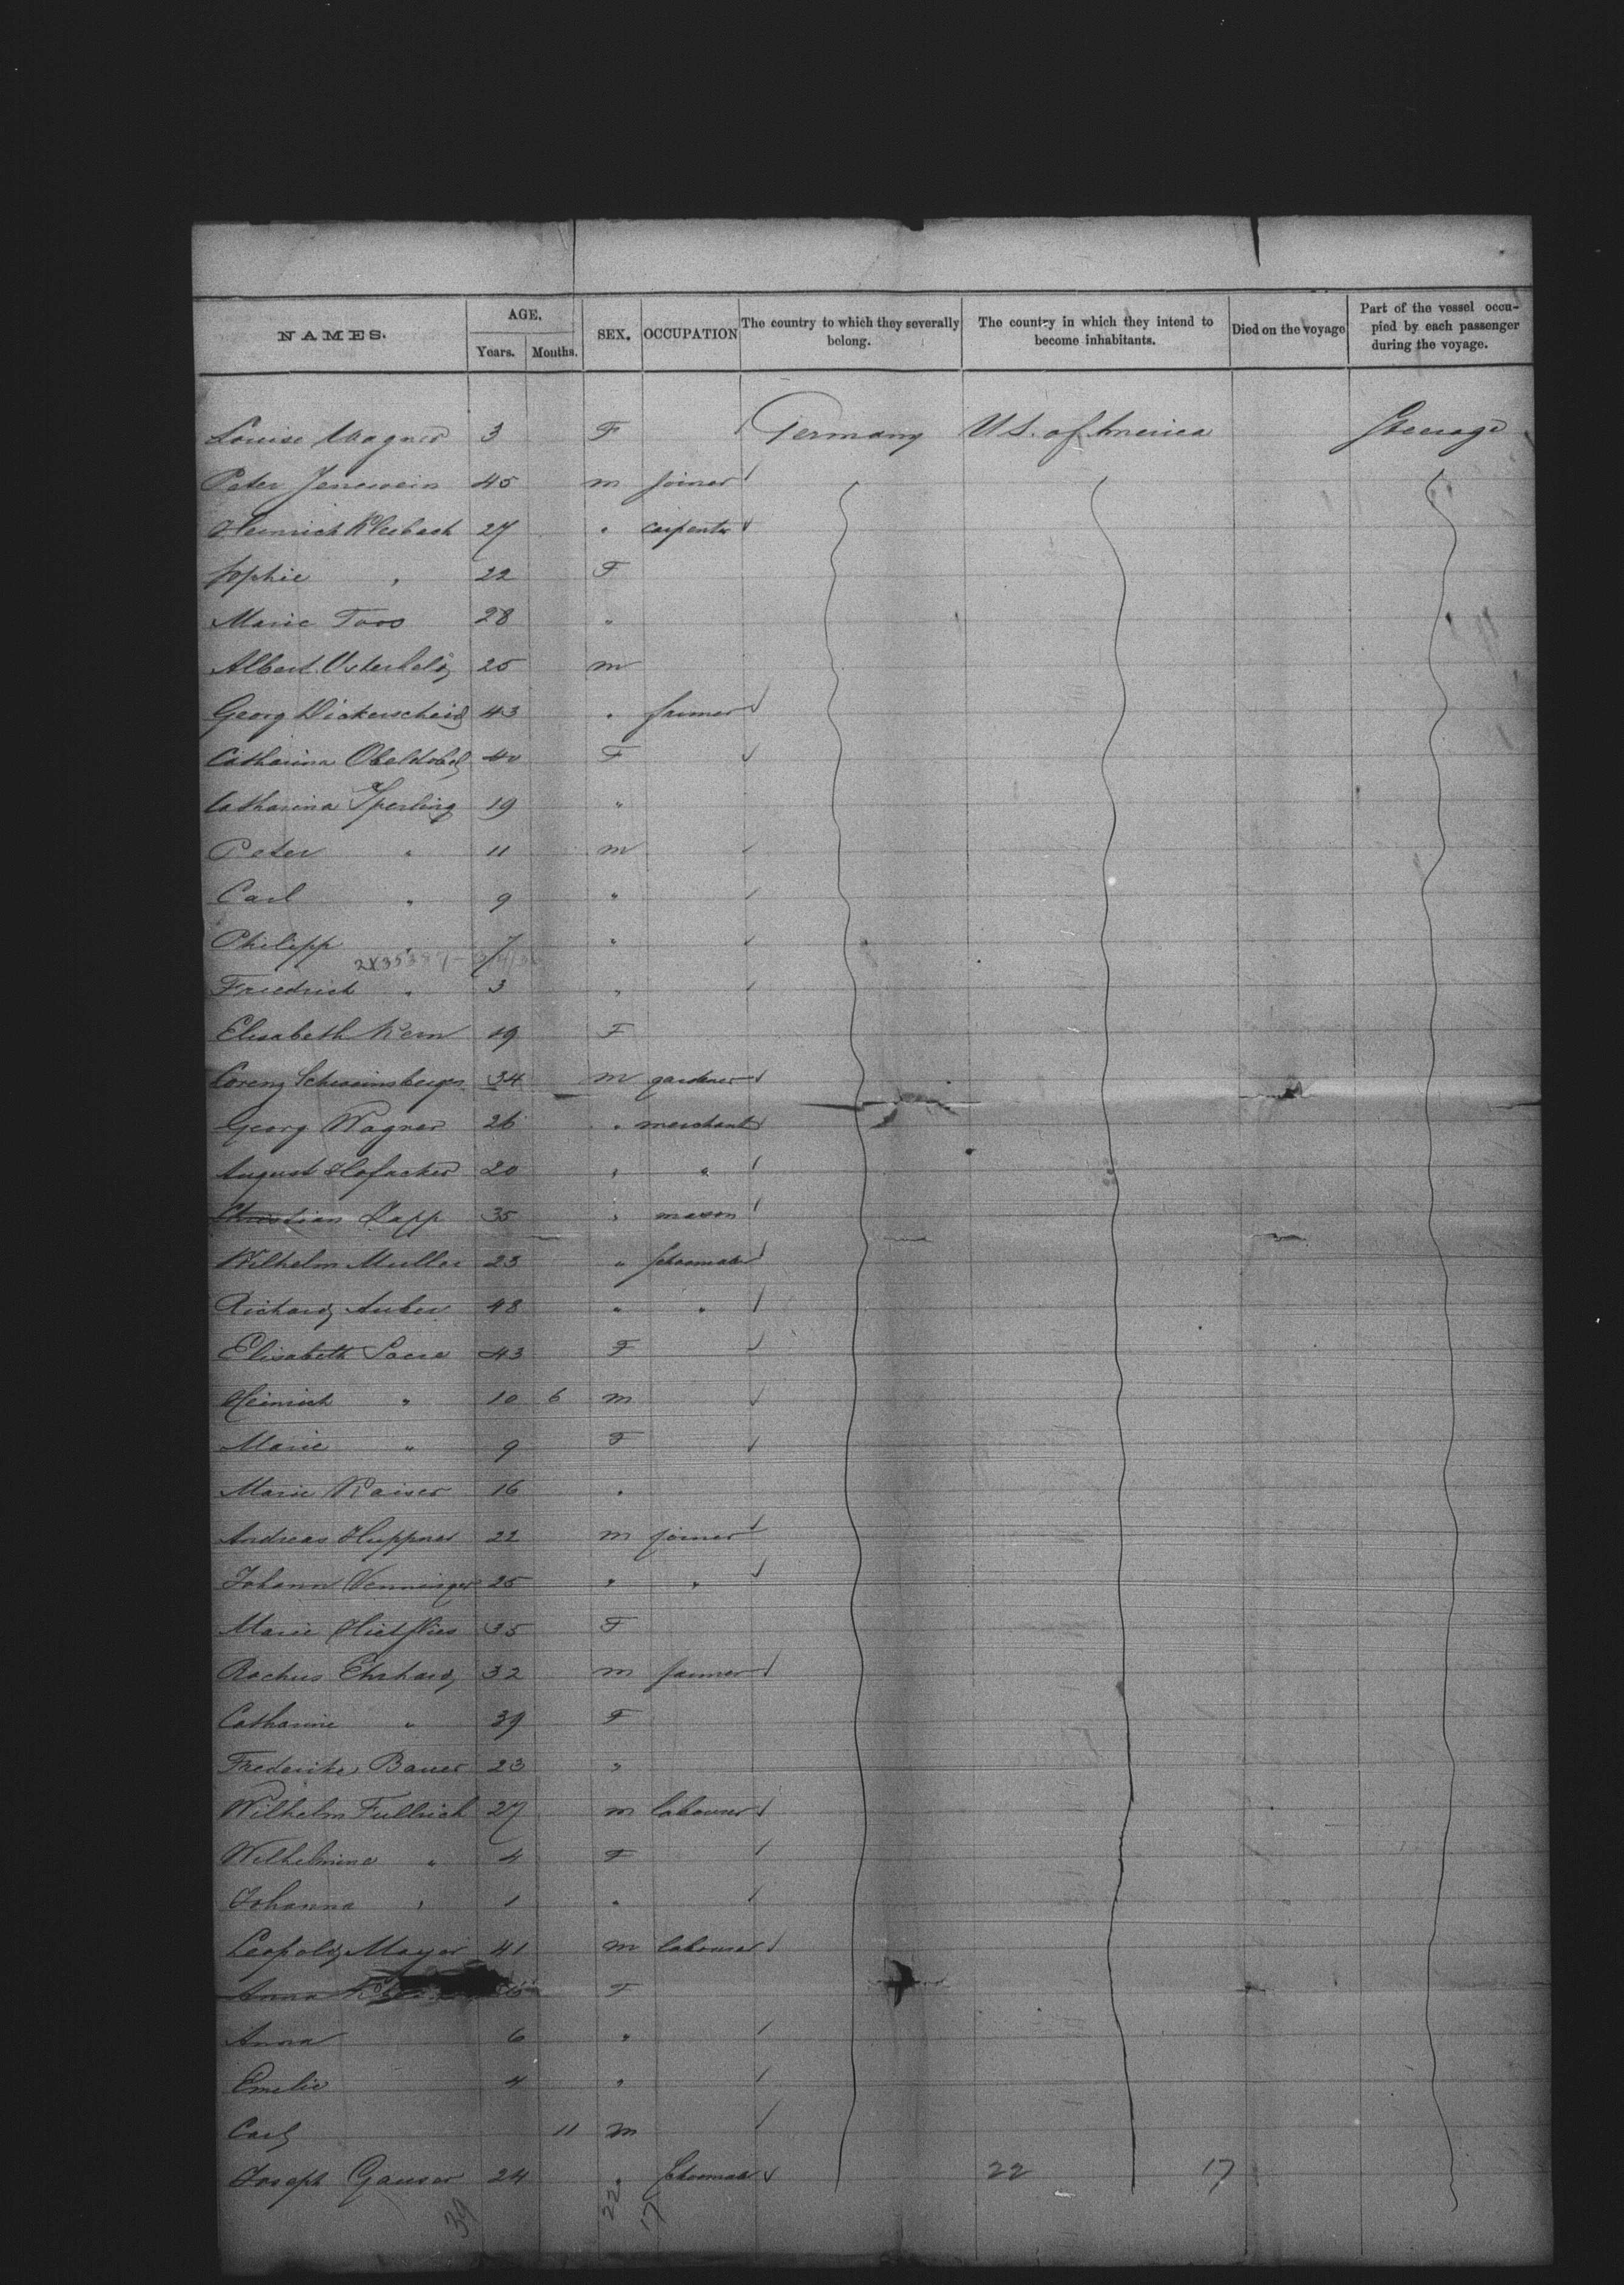 NAMES. AGE. SEX. OCCUPATION The country to which they severally belong. The country in which they intend to become inhabitants. Died on the voyage Part of the vessel occupied by each passenger during the voyage.
Years. Months.
Louise Wagner 3 F Germany U.S. of America Steerage
Peter Jenewein 45 m joiner
Heinrich Kleebach 27 " carpenter
Sophie " 22 F
Marie Toos 28 "
Albert Osterheld 25 m
Georg Dickerscheid 43 " farmer
Catharina Obeldobel 40 F
Catharina Sperling 19 "
Peter " 11 m
Carl " 9 "
Philipp " 7 "
Friedrich " 3 "
Elisabeth Kern 19 F
Lorenz Schweinsberger 34 m gardener
Georg Wagner 26 " merchant
August Hofacker 20 " "
Christian Lapp 35 " mason
Wilhelm Muller 23 " shoemaker
Richard Auber 48 " "
Elisabeth 43 F
Heinrich " 10 6 m
Marie " 9 F
Marie Kaiser 16 "
Andreas Huppner 22 m joiner
Johann Venninger 25 " "
Marie 35 F
Rochus Ehrhard 32 m farmer
Catharine " 39 F
Frederike Bauer 23 "
Wilhelm Fullrich 27 m labourer
Wilhelmine " 4 F
Johanna " 1 "
Leopold Mayer 41 m labourer
Anna F
Anna 6 "
Emilie 4 "
Carl 11 m
Joseph Ganser 24 " shoemaker 22 17
39 22 17